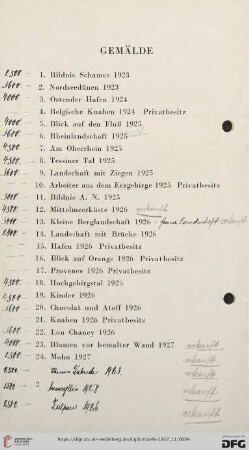 GEMÄLDE
2.500.- — 1. Bildnis Schames 1923
3600.- — 2. Nordseedünen 1923
4000.- — 3. Ostender Hafen 1924
— 4. Belgische Knaben 1924 Privatbesitz
4000.- — 5. Blick auf den Fluß 1925
3600.- — 6. Rheinlandschaft 1925
4.500.- — 7. Am Oberrhein 1925
4.500.- — 8. Tessiner Tal 1925
3600.- — 9. Landschaft mit Ziegen 1925
— 10. Arbeiter aus dem Erzgebirge 1925 Privatbesitz
3600.- — 11. Bildnis A. N. 1925
4.500.- — 12. Mittelmeerküste 1926 verkauft
— 13. Kleine Berglandschaft 1926 verkauft
— 14. Landschaft mit Brücke 1926
— 15. Hafen 1926 Privatbesitz
— 16. Blick auf Orange 1926 Privatbesitz
— 17. Provence 1926 Privatbesitz
4.500.- — 18. Hochgebirgstal 1926
— 19. Kinder 1926
3600.- — 20. Chocolat und Atoff 1926
— 21. Knaben 1926 Privatbesitz
3600.- — 22. Lon Chaney 1926
4000.- — 23. Blumen vor bemalter Wand 1927 verkauft
2.500.- — 24. Mohn 1927 verkauft
verkauft
verkauft
Tulpen 1926
verkauft
https://digi.ub.uni-heidelberg.de/diglit/thannhauser1927_11/0004